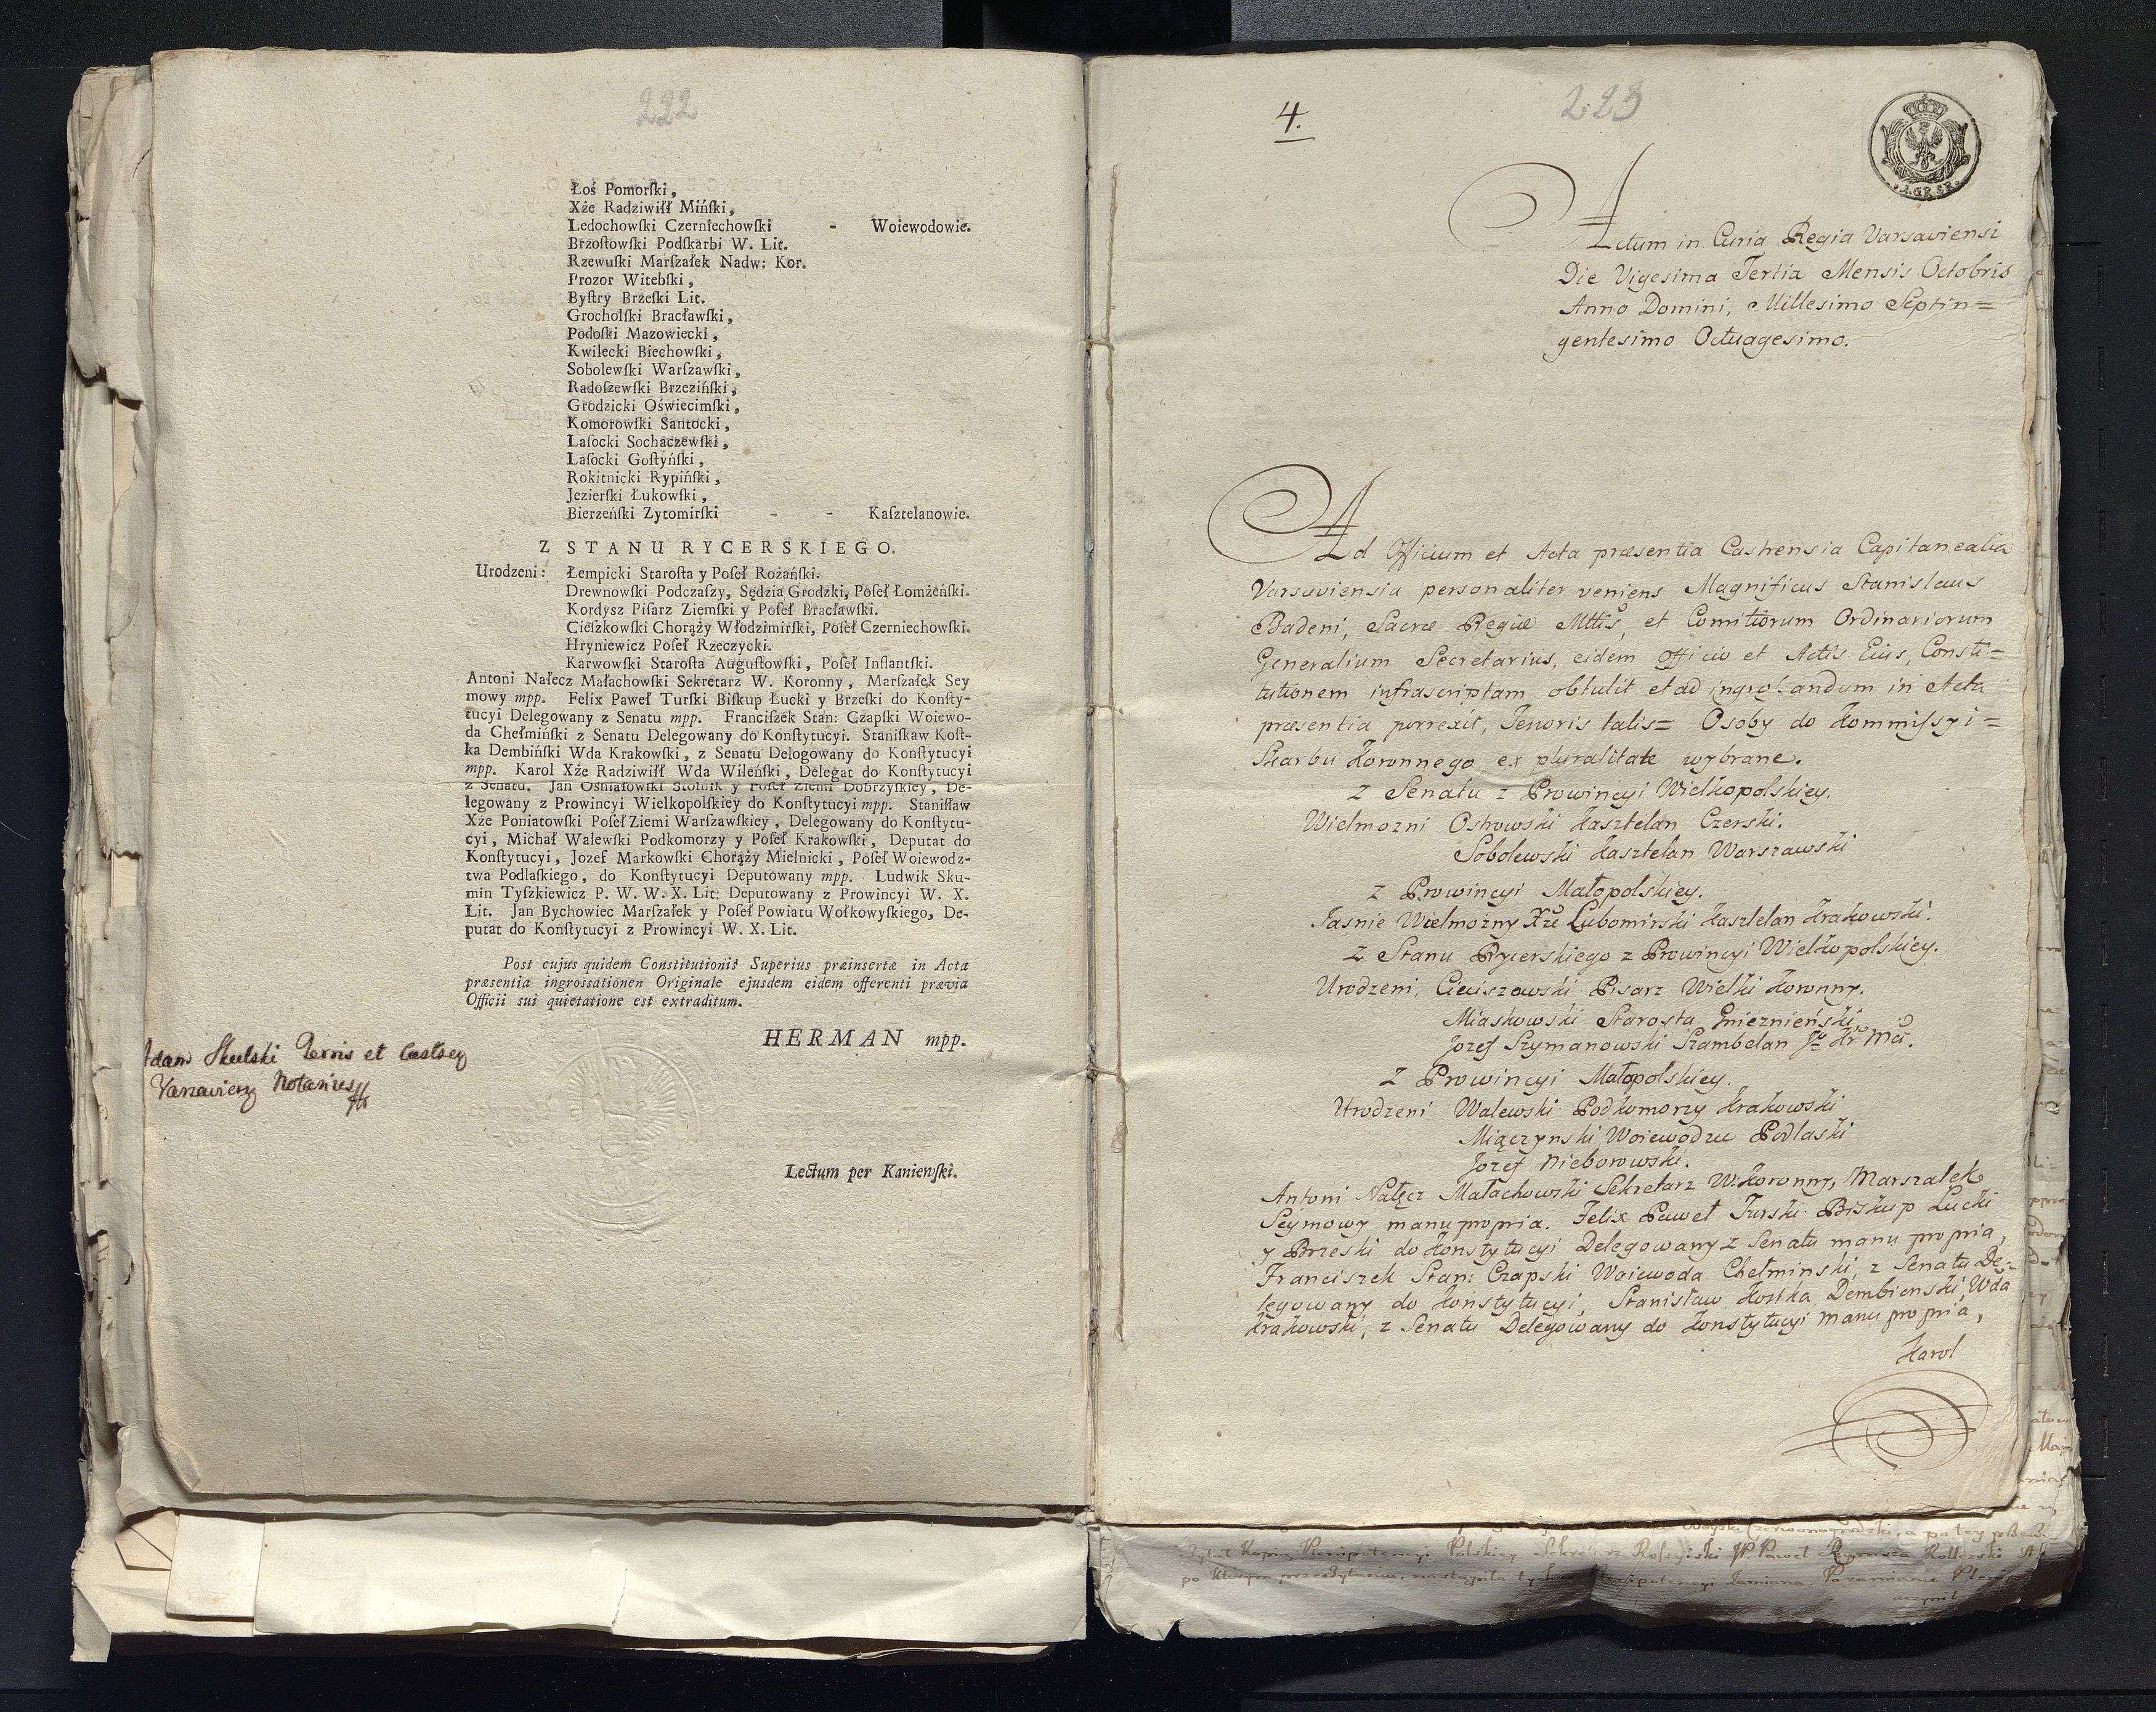 222
Łoś Pomorſki,
Xże Radziwiłł Miński,
Ledochowſki Czerniechowſki - Woiewodowie.
Brzoſtowſki Podſkarbi W. Lit.
Rzewuſki Marſzałek Nadw: Kor.
Prozor Witebſki,
Byſtry Brzeſki Lit.
Grocholſki Bracławſki,
Podoſki Mazowiecki,
Kwilecki Biechowſki,
Sobolewſki Warſzawſki,
Radoſzewſki Brzeziński,
Grodzicki Oświecimſki,
Komorowſki Santocki,
Laſocki Sochaczewſki,
Laſocki Goſtyńſki,
Rokitnicki Rypińſki,
Jezierſki Łukowſki,
Bierzeńſki Zytomirſki - - Kaſztelanowie.
Z STANU RYCERSKIEGO.
Urodzeni: Łempicki Staroſta y Poſeł Rożańſki.
Drewnowſki Podczaſzy, Sędzia Grodzki, Poſeł Łomżeńſki.
Kordysz Piſarz Ziemſki y Poſeł Bracławſki.
Cieſzkowſki Chorąży Włodzimirſki, Poſeł Czerniechowſki.
Hryniewicz Poſeł Rzeczycki.
Karwowſki Staroſta Auguſtowſki, Poſeł Inflantſki.
Antoni Nałecz Małachowſki Sekretarz W. Koronny, Marſzałek Sey
mowy mpp. Felix Paweł Turſki Biſkup Łucki y Brzeſki do Konſty-
tucyi Delegowany z Senatu mpp. Franciſzek Stan: Czapſki Woiewo-
da Chełmińſki z Senatu Delegowany do Konſtytucyi. Staniſkaw Koſt-
ka Dembińſki Wda Krakowſki, z Senatu Delogowany do Konſtytucyi
mpp. Karol Xże Radziwiłł Wda Wileńſki, Delegat do Konſtytucyi
z Senatu. Jan Ośniałowſki Stolnik y Poſeł Ziemi Dobrzyſkiey, De-
legowany z Prowincyi Wielkopolſkiey do Konſtytucyi mpp. Staniſław
Xże Poniatowſki Poſeł Ziemi Warſzawſkiey, Delegowany do Konſtytu-
cyi, Michał Walewſki Podkomorzy y Poſeł Krakowſki, Deputat do
Konſtytucyi, Jozef Markowſki Chorąży Mielnicki, Poſeł Woiewodz-
twa Podlaſkiego, do Konſtytucyi Deputowany mpp. Ludwik Sku-
min Tyſzkiewicz P. W. W. X. Lit: Deputowany z Prowincyi W. X.
Lit. Jan Bychowiec Marſzałek y Poſeł Powiatu Wołkowyſkiego, De-
putat do Konſtytucyi z Prowincyi W. X. Lit.
Post cujus quidem Constitutionis Superius præinsertæ in Acta
præsentia ingrossationen Originale ejusdem eidem offerenti prævia
Officii sui quietatione est extraditum.
HERMAN mpp.
Adam Skulski
Notarius
Lectum per Kaniewſki.
4.
223
1.GR.SR.
Actum in Curia Regia Varsaviensi
Die Vigesima Tertia Mensis Octobris
Anno Domini, Millesimo Septin=
gentesimo Octuagesimo.
Ad Officium et Acta præsentia Castrensia Capitanealia
Varsaviensia personaliter veniens Magnificus Stanislaus
Badeni, Sacræ Regiæ Mttis, et Comitiorum Ordinariorum
Generalium Secretarius, eidem Officio et Actis Eius, Consti=
tutionem infrascriptam obtulit et ad ingrossandum in Acta
præsentia porrexit, Tenoris talis= Osoby do Kommissyi=
Skarbu Koronnego ex pluralitate wybrane.
z Senatu z Prowincyi Wielkopolskiey.
Wielmożni Ostrowski Kasztelan Czerski.
Sobolewski Kasztelan Warszawski
z Prowincyi Małopolskiey.
Jasnie Wielmożny Xże Lubomirski Kasztelan Krakowski.
z Stanu Rycerskiego z Prowincyi Wielkopolskiey.
Urodzeni, Cieciszowski Pisarz Wielki Koronny.
Miaskowski Starosta Gnieznieński.
Jozef Szymanowski Szambelan
z Prowincyi Małopolskiey.
Urodzeni Walewski Podkomorzy Krakowski
Miączynski Woiewodzic Podlaski
Jozef Nieborowski.
Antoni Nałęcz Małachowski Sekretarz W. Koronny, Marszałek
Seymowy manu propria. Felix Paweł Turski Biskup Łucki
y Brzeski do Konstytucyi Delegowany z Senatu manu propria,
Franciszek Stan: Czapski Woiewoda Chełminski, z Senatu De=
legowany do Konstytucyi, Stanisław Kostka Dembienski, Wda
Krakowski, z Senatu Delegowany do Konstytucyi manu propria,
Karol